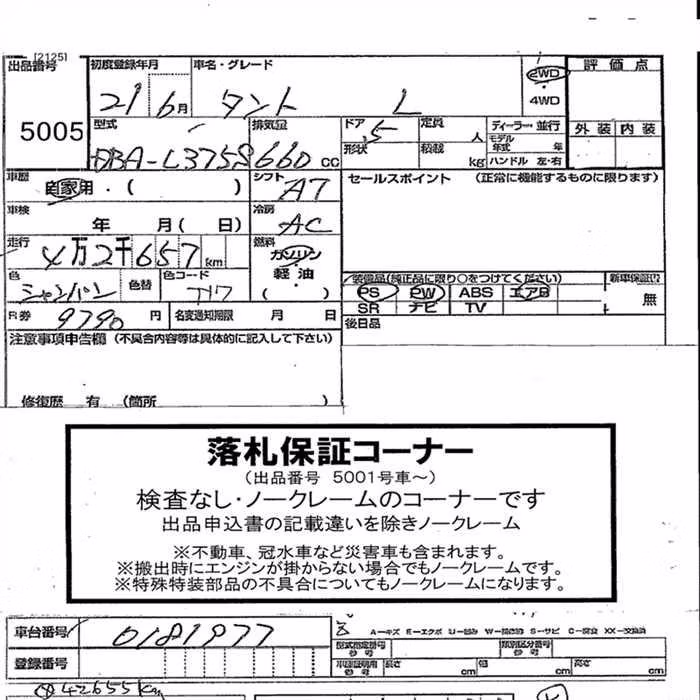 [2125]
出品番号 初度登録年月 車名・グレード 2WD 評価点
21 6月 タント L 4WD
5005 型式 排気量 ドア 定員 ディーラー・並行 外装 内装
DBA-L375S 660 cc 5 人 モデル年式 年
形状 積載 kg ハンドル 左・右
車歴 自家用・( ) シフト AT セールスポイント (正常に機能するものに限ります)
車検 年 月( 日) 冷房 AC
走行 4万2千657km 燃料 ガソリン
軽油
( )
色 シャンパン 色替 色コード 装備品(純正品に限り○をつけてください) 新車保証
PS PW ABS エアB 無
SR ナビ TV
R券 9790 円 名変通知期限 月 日 後日品
注意事項申告欄 (不具合内容等は具体的に記入して下さい)
修復歴 有 (箇所 )
落札保証コーナー
(出品番号 5001号車~)
検査なし・ノークレームのコーナーです
出品申込書の記載違いを除きノークレーム
※不動車、冠水車など災害車も含まれます。
※搬出時にエンジンが掛からない場合でもノークレームです。
※特殊特装部品の不具合についてもノークレームになります。
車台番号 0181977
A-キズ E-エクボ U-凹み W-補修跡 S-サビ C-腐食 XX-交換済
型式指定番号 参考 類別区分番号 参考
登録番号 車庫証明用 参考 長さ cm 幅 cm 高さ cm
42655km